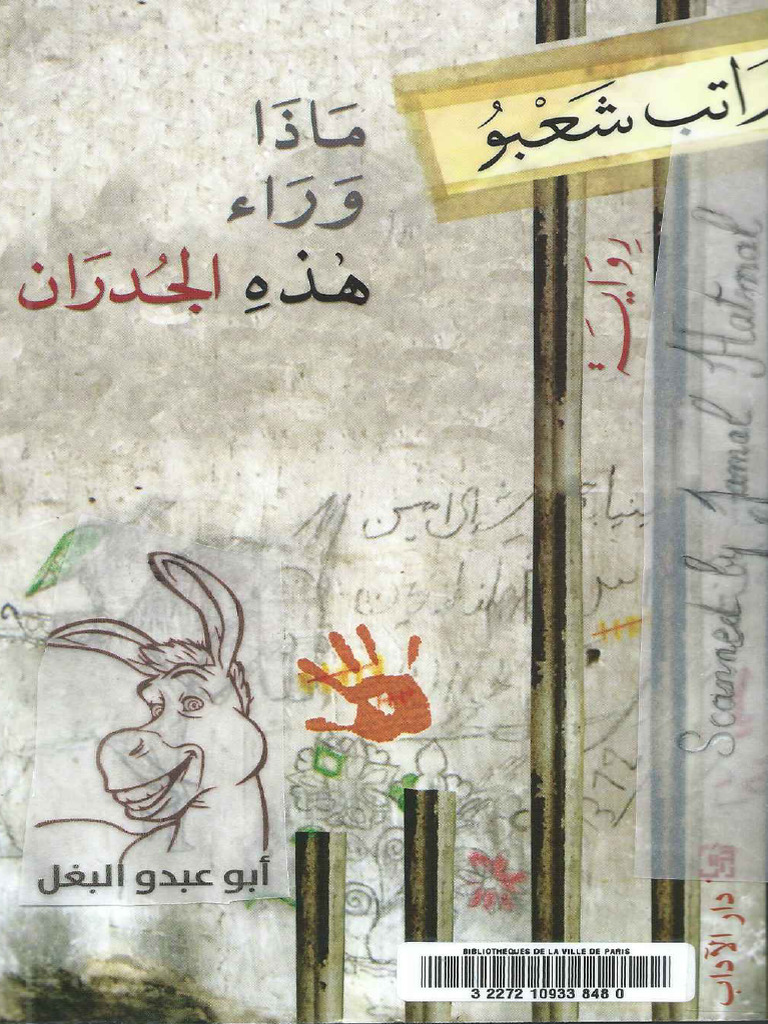 راتب شَعْبُو
مَاذَا
وَرَاء
هٰذهِ الجُدرَان
رِوَايَة
Scanned by Jamal Hatmal
372
أبو عبدو البغل
دار الآداب
BIBLIOTHEQUES DE LA VILLE DE PARIS
3 2272 10933 848 0